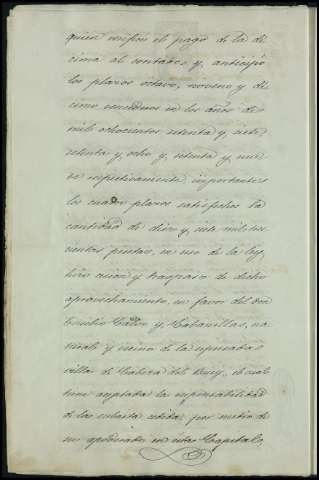 quien verificó el pago de la dé
cima al contado y, anticipó
los plazos octavo, noveno y dé
cimo vencideros en los años de
mil ochocientos setenta y, siete
setenta y, ocho y, setenta y, nue
ve respectivamente importantes
los cuatro plazos satisfechos la
cantidad de diez y, siete mil tres
cientas pesetas, en uso de la ley,
hizo cesion y traspaso de dicho
aprovechamiento, en favor del don
Calvo y, Cabanillas, na
tural y vecino de la espresada
villa de Cabeza del Buey, el cual
tiene aceptada la responsabilidad
de la subasta por medio de
su apoderado en esta Capital,